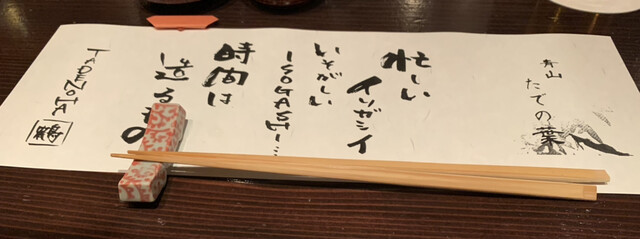 青山
たでの葉
忙しい
イソガシイ
いそがしい
ISOGASHI…
時間は
造るもの
TADENOHA